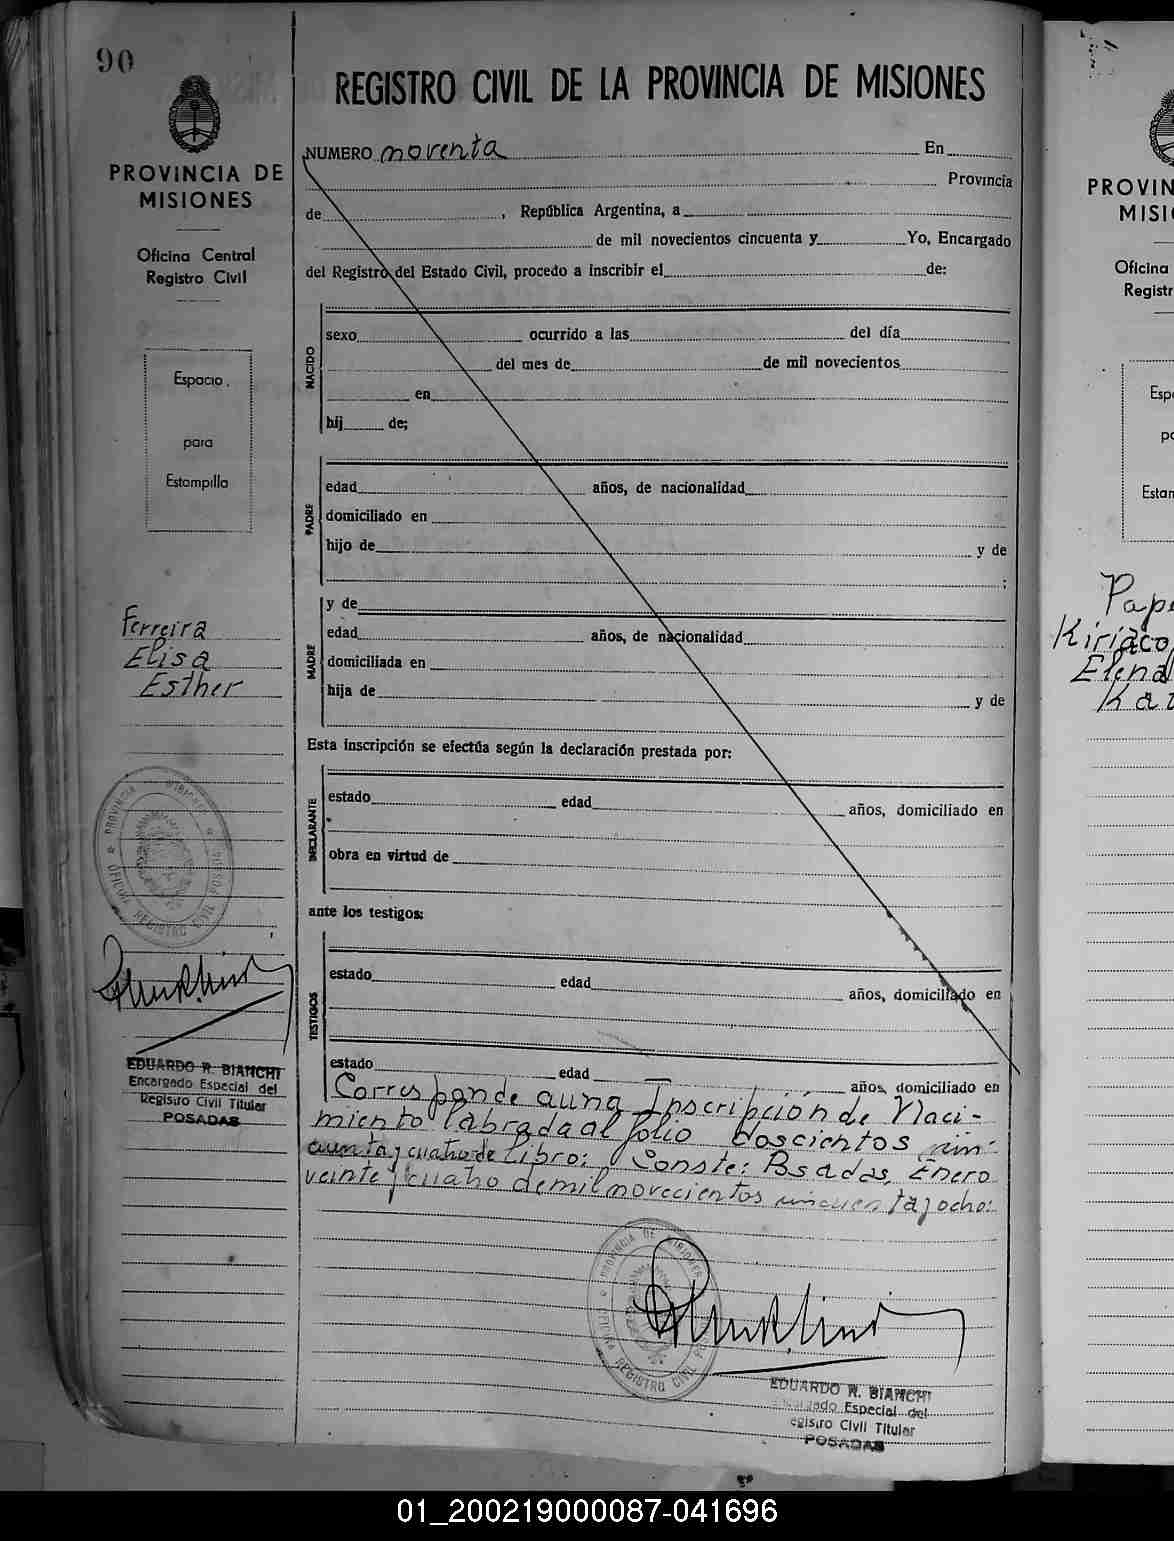 90
PROVINCIA DE
MISIONES
Oficina Central
Registro Civil
Espacio
para
Estampilla
Ferreira
Elisa
Esther
PROVINCIA DE MISIONES
OFICINA REGISTRO CIVIL POSADAS
EDUARDO R. BIANCHI
Encargado Especial del
Registro Civil Titular
POSADAS
REGISTRO CIVIL DE LA PROVINCIA DE MISIONES
NUMERO noventa En
Provincia
de , República Argentina, a
de mil novecientos cincuenta y Yo, Encargado
del Registro del Estado Civil, procedo a inscribir el de:
NACIDO
sexo ocurrido a las del día
del mes de de mil novecientos
en
hij de;
PADRE
edad años, de nacionalidad
domiciliado en
hijo de y de
;
MADRE
y de
edad años, de nacionalidad
domiciliada en
hija de y de
Esta inscripción se efectúa según la declaración prestada por:
DECLARANTE
estado edad años, domiciliado en
obra en virtud de
ante los testigos:
TESTIGOS
estado edad años, domiciliado en
estado edad años, domiciliado en
Corresponde a una Inscripción de Naci-
miento labrada al folio doscientos cin-
cuenta y cuatro de Libro; Conste: Posadas, Enero
veinte y cuatro de mil novecientos cincuenta y ocho:
PROVINCIA DE MISIONES
OFICINA REGISTRO CIVIL
EDUARDO R. BIANCHI
Encargado Especial del
Registro Civil Titular
POSADAS
PROVIN
MISI
Oficina
Registr
Esp
Estam
Kiriaco
Elena
01_200219000087-041696